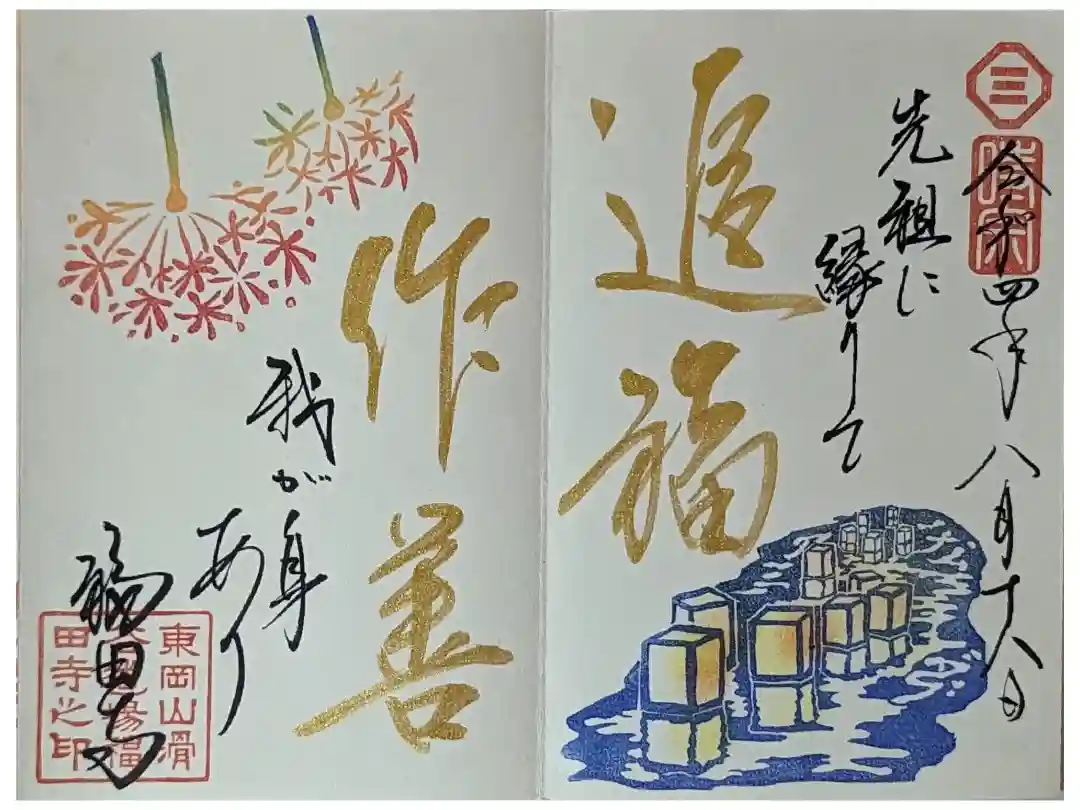 令和四年八月十八日
先祖に
縁りて
追福
作善
我が身
あり
福田寺
三
東岡山滑
田寺之印